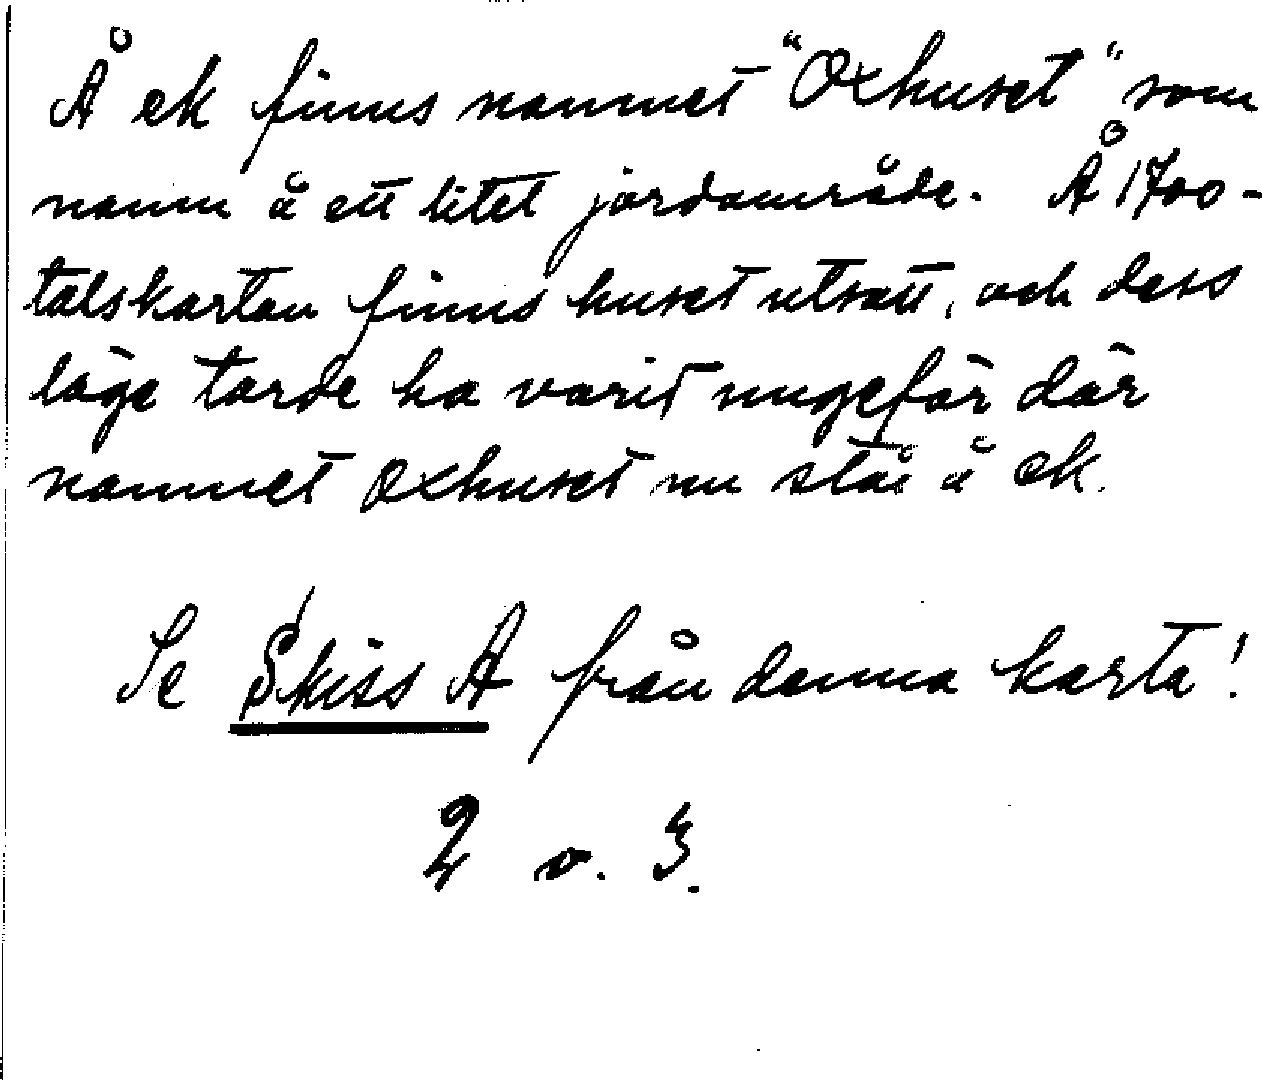 Å ek finns namnet "Oxhuset" som
namn å ett litet jordområde. Å 1700-
talskartan finns huset utsatt, och dess
läge torde ha varit ungefär där
namnet Oxhuset nu står å ek.
Se Skiss A från denna karta!
2 o. 3.